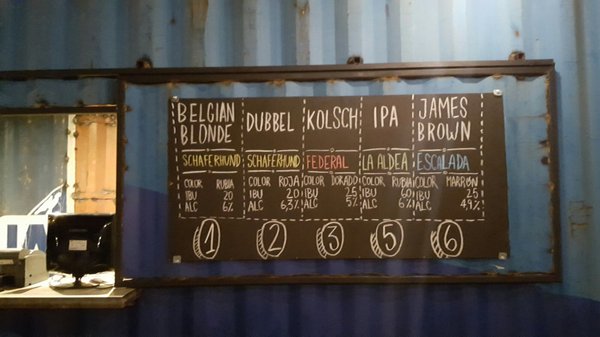 BELGIAN
BLONDE
SCHAFERHUND
COLOR RUBIA
IBU 20
ALC 6%
1
DUBBEL
SCHAFERHUND
COLOR ROJA
IBU 20
ALC 6,3%
2
KOLSCH
FEDERAL
COLOR DORADO
IBU 25
ALC 5%
3
IPA
LA ALDEA
COLOR RUBIA
IBU 60
ALC 6%
5
JAMES
BROWN
ESCALADA
COLOR MARRON
IBU 25
ALC 4,9%
6